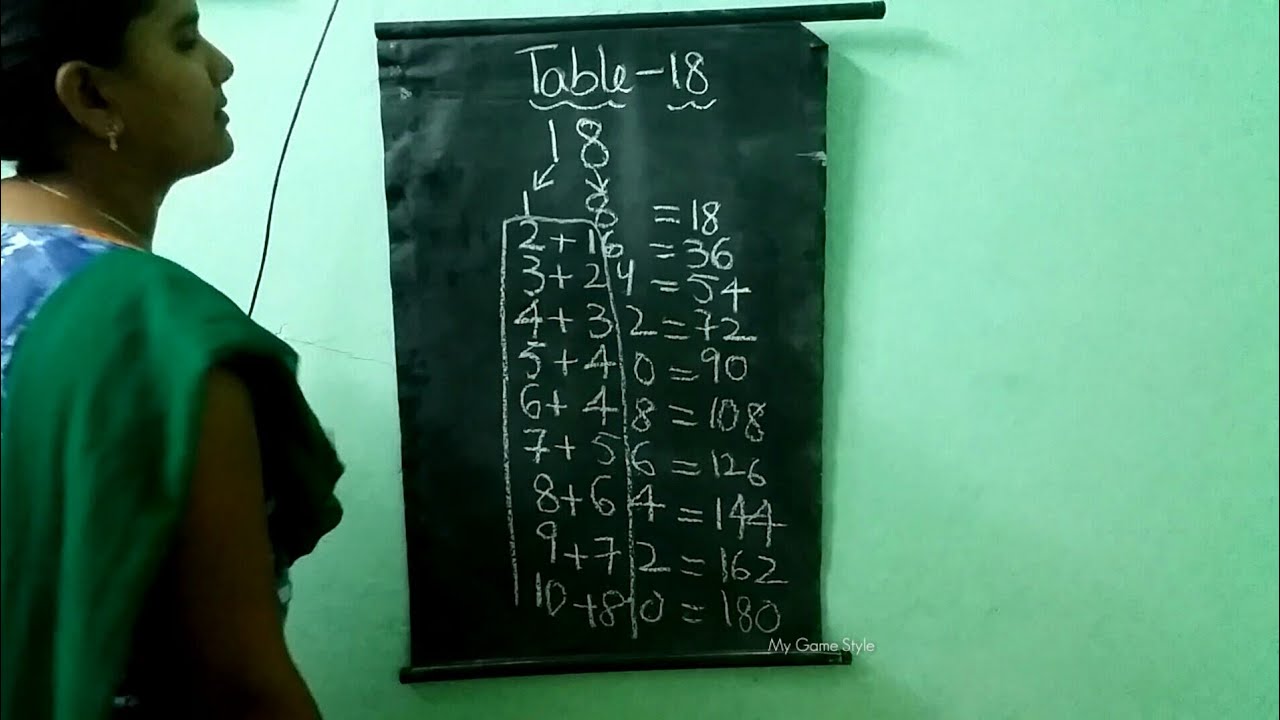 Table-18
1 8
1 8 = 18
2 + 16 = 36
3 + 24 = 54
4 + 32 = 72
5 + 40 = 90
6 + 48 = 108
7 + 56 = 126
8 + 64 = 144
9 + 72 = 162
10 + 80 = 180
My Game Style